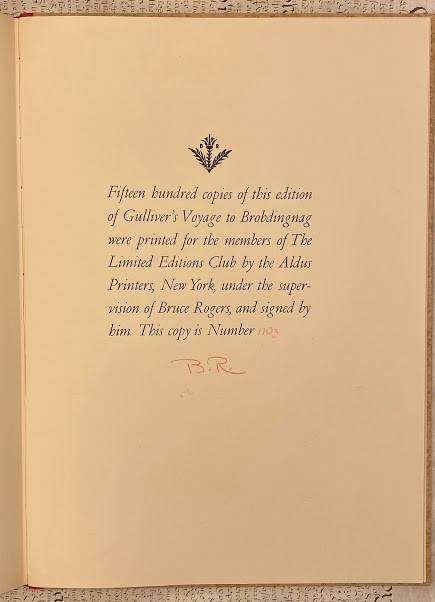 B R
Fifteen hundred copies of this edition
of Gulliver's Voyage to Brobdingnag
were printed for the members of The
Limited Editions Club by the Aldus
Printers, New York, under the super-
vision of Bruce Rogers, and signed by
him. This copy is Number 1103
B.R.